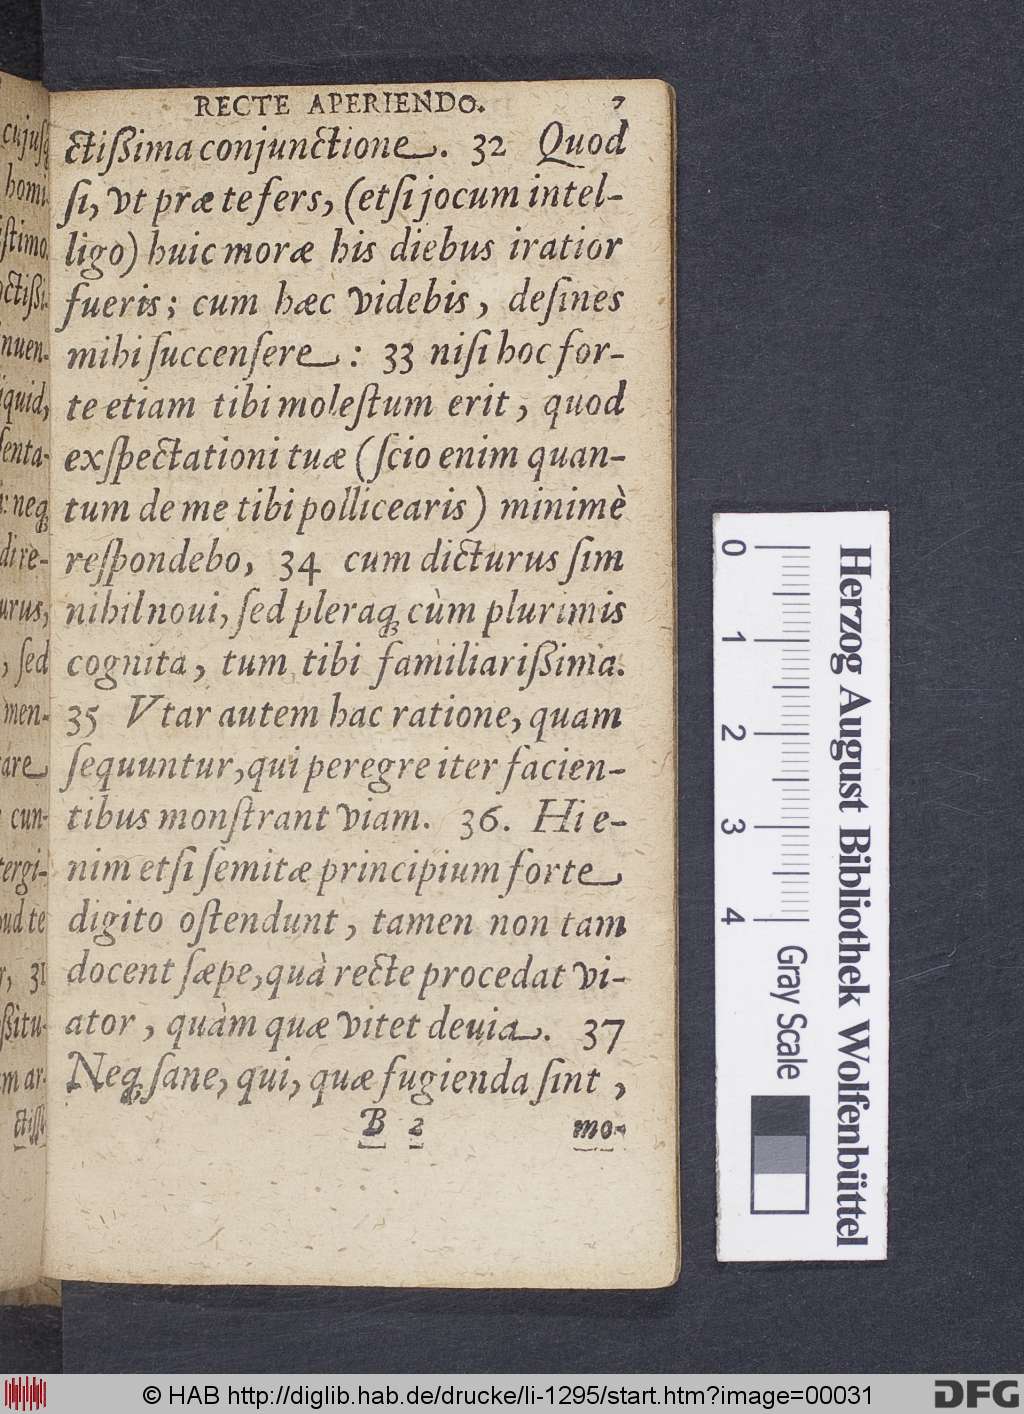 RECTE APERIENDO. 7
ctißima conjunctione. 32 Quod
ſi, vt præ te fers, (etſi jocum intel-
ligo) huic moræ his diebus iratior
fueris; cum hæc videbis, deſines
mihi ſuccenſere : 33 niſi hoc for-
te etiam tibi moleſtum erit, quod
exſpectationi tuæ (ſcio enim quan-
tum de me tibi pollicearis) minimè
reſpondebo, 34 cum dicturus ſim
nihil noui, ſed pleraq; cùm plurimis
cognita, tum tibi familiarißima.
35 Vtar autem hac ratione, quam
ſequuntur, qui peregre iter facien-
tibus monſtrant viam. 36. Hi e-
nim etſi ſemitæ principium forte
digito oſtendunt, tamen non tam
docent ſæpe, quà recte procedat vi-
ator, quàm quæ vitet deuia. 37
Neq; ſane, qui, quæ fugienda ſint,
B 2 mo-
cujuſq;
homi-
nuen-
iquid,
ſenta-
: neq;
di re-
urus,
, ſed
men-
are
cun-
tergi-
ud te
31
ßitu-
m ar-
ctiſſi-
0 1 2 3 4
Gray Scale
Herzog August Bibliothek Wolfenbüttel
© HAB http://diglib.hab.de/drucke/li-1295/start.htm?image=00031
DFG